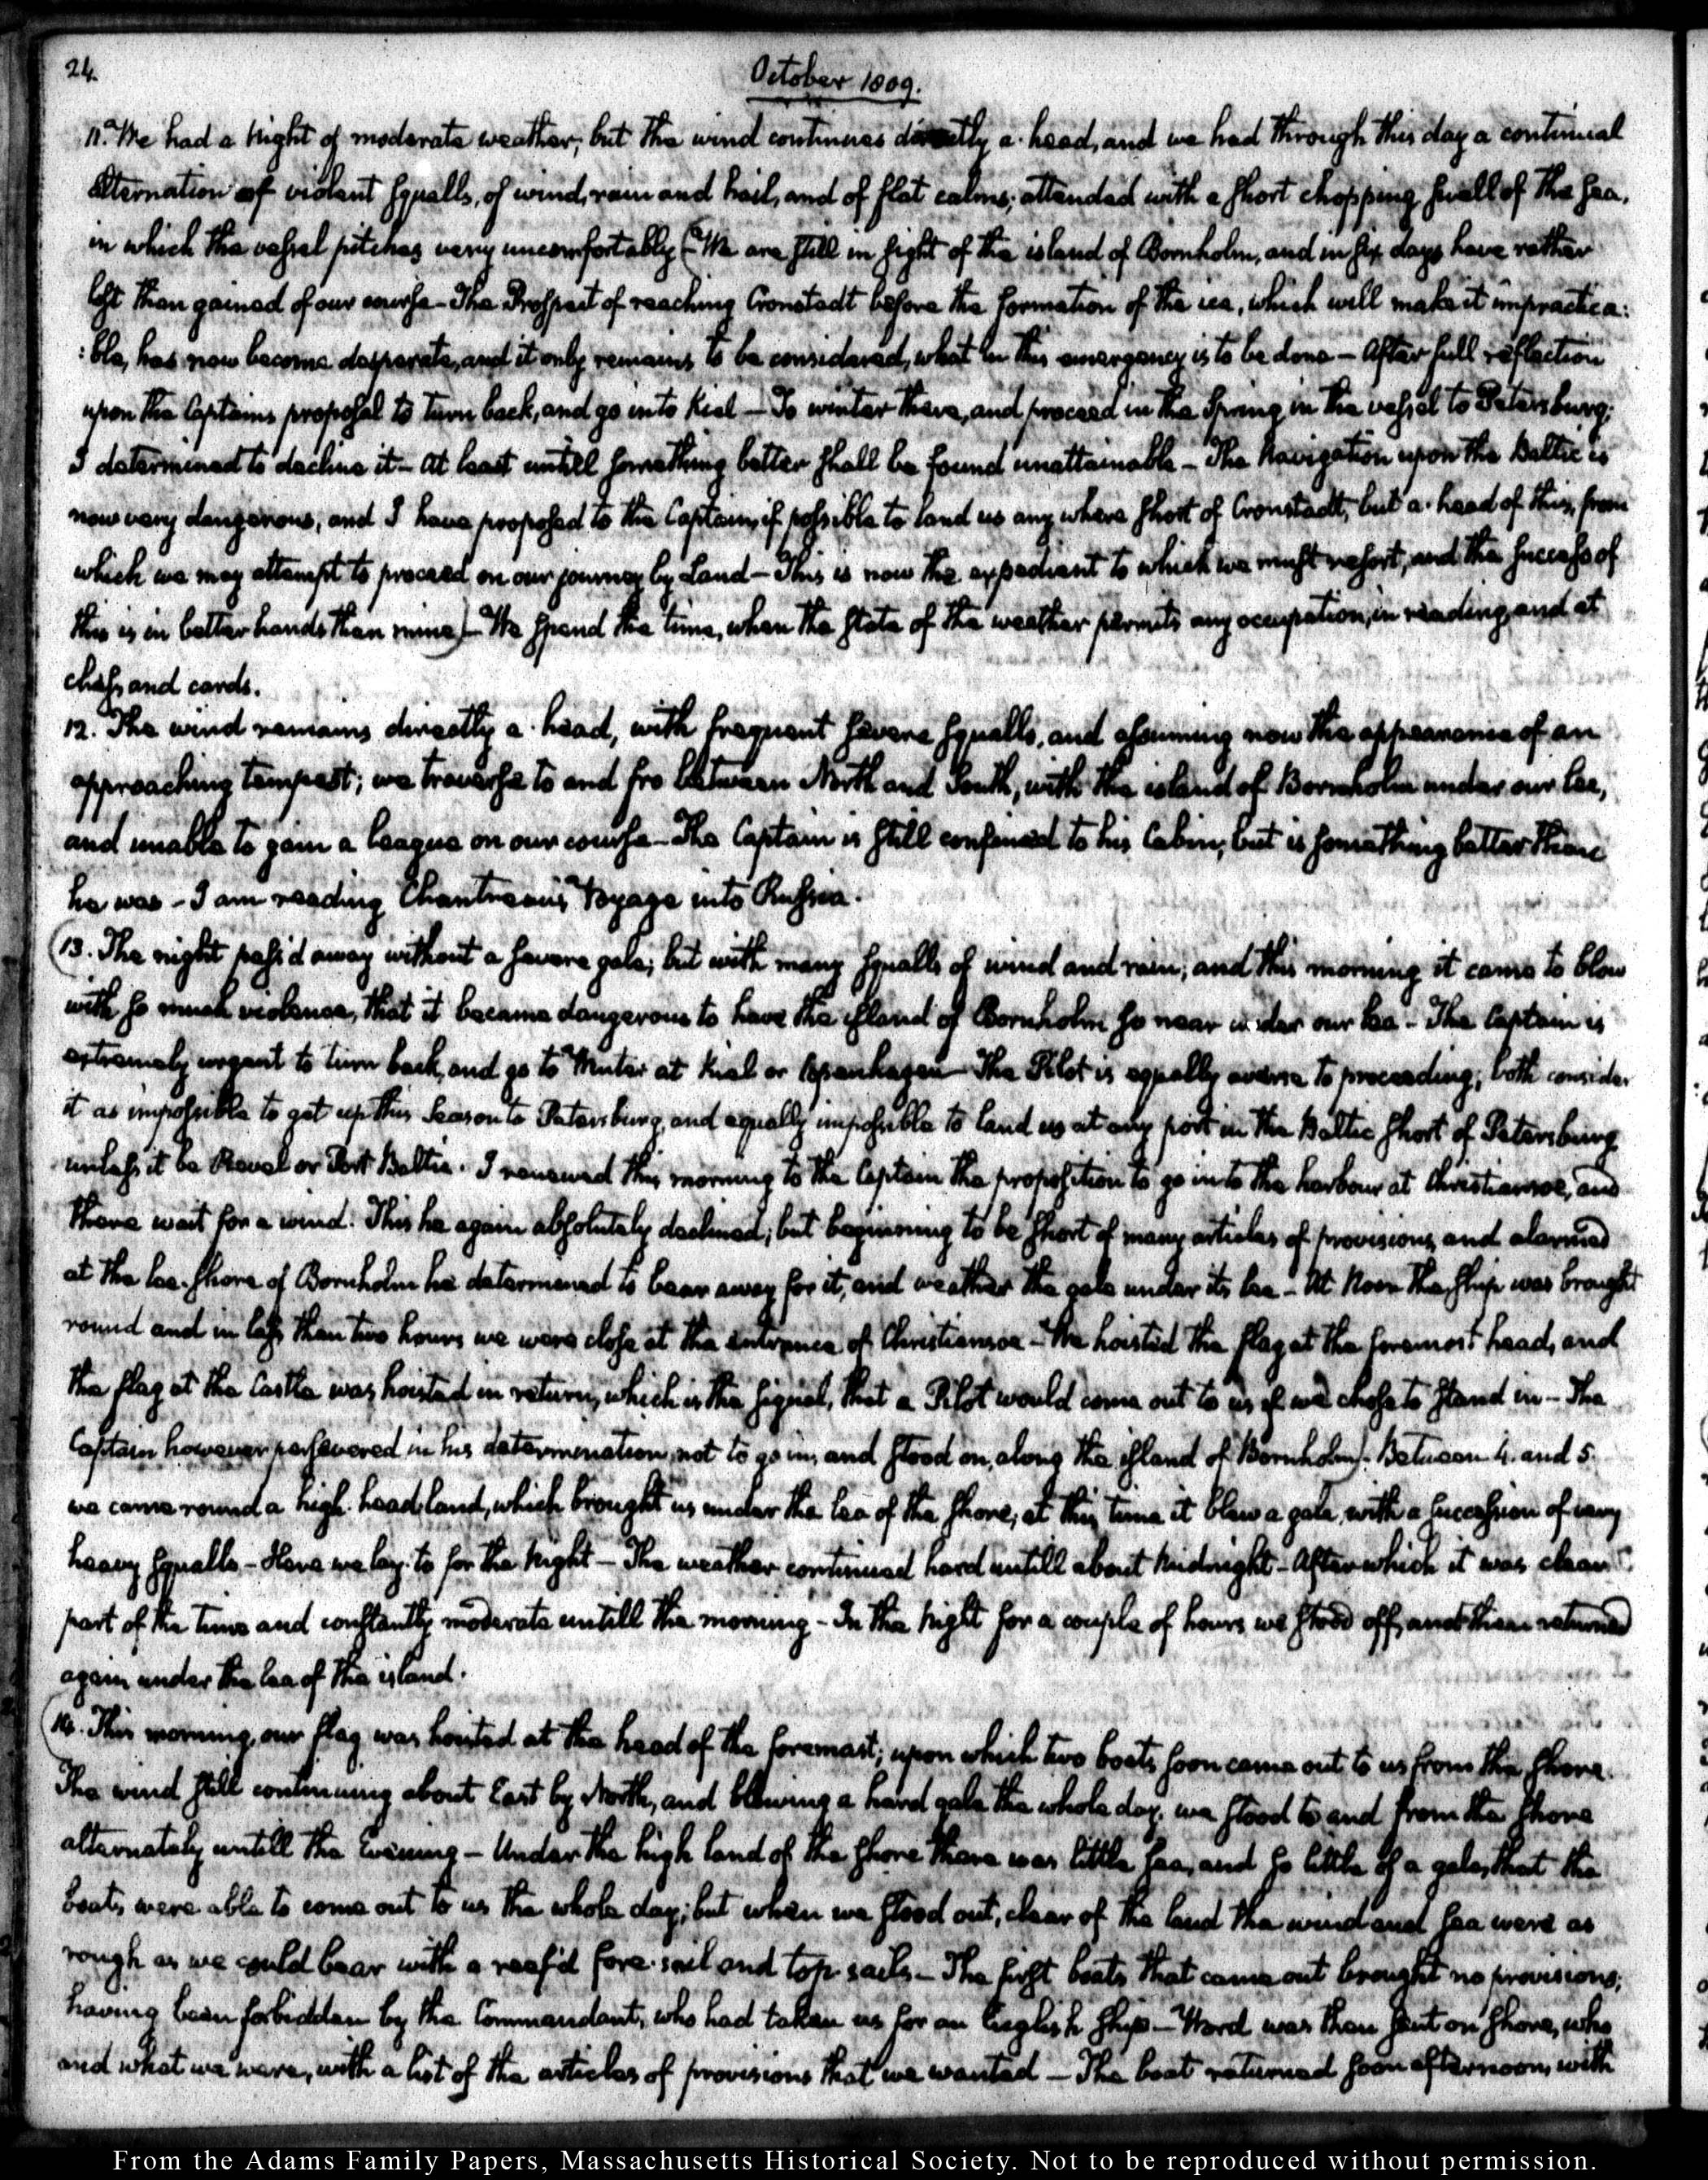 24.
October 1809.
11. We had a Night of moderate weather; but the wind continues directly a-head, and we had through this day a continual
alternation of violent squalls, of wind, rain and hail, and of flat calms; attended with a short chopping swell of the sea,
in which the vessel pitches very uncomfortably (We are still in sight of the island of Bornholm, and in six days have rather
lost than gained of our course - The Prospect of reaching Cronstadt before the formation of the ice, which will make it impractica:
:ble, has now become desperate, and it only remains to be considered, what in this emergency is to be done - After full reflection
upon the Captains proposal to turn back, and go into Kiel - To winter there, and proceed in the Spring in the vessel to Petersburg;
I determined to decline it - At least untill something better shall be found unattainable - The Navigation upon the Baltic is
now very dangerous, and I have proposed to the Captain, if possible to land us any where short of Cronstadt, but a-head of this, from
which we may attempt to proceed on our journey by Land - This is now the expedient to which we must resort, and the success of
this is in better hands than mine) - We spend the time, when the state of the weather permits any occupation, in reading, and at
chess, and cards.
12. The wind remains directly a-head, with frequent severe squalls, and assuming now the appearance of an
approaching tempest; we traverse to and fro between North and South, with the island of Bornholm under our lee,
and unable to gain a league on our course - The Captain is still confined to his Cabin, but is something better than
he was - I am reading Chantreau's Voyage into Russia.
(13. The night pass'd away without a severe gale; but with many squalls of wind and rain; and this morning it came to blow
with so much violence, that it became dangerous to have the island of Bornholm so near under our lee - The Captain is
extremely urgent to turn back, and go to Winter at Kiel or Copenhagen - The Pilot is equally averse to proceeding; both consider
it as impossible to get up this Season to Petersburg, and equally impossible to land us at any port in the Baltic short of Petersburg
unless it be Reval or Port Baltic. I renewed this morning to the Captain the proposition to go into the harbour at Christiansoe, and
there wait for a wind. This he again absolutely declined; but beginning to be short of many articles of provisions, and alarmed
at the lee-shore of Bornholm he determined to bear away for it, and weather the gale under its lee - At Noon the ship was brought
round and in less than two hours we were close at the entrance of Christiansoe - We hoisted the flag at the foremost head, and
the flag at the Castle was hoisted in return, which is the signal, that a Pilot would come out to us if we chose to stand in - The
Captain however persevered in his determination not to go in, and stood on, along the island of Bornholm). Between 4. and 5.
we came round a high head land, which brought us under the lee of the shore; at this time it blew a gale, with a succession of very
heavy squalls - Here we lay-to for the Night - The weather continued hard untill about Midnight - After which it was clear
part of the time and constantly moderate untill the morning - In the Night for a couple of hours we stood off, and then returned
again under the lee of the island.
(14. This morning, our flag was hoisted at the head of the foremast; upon which two boats soon came out to us from the shore.
The wind still continuing about East by North, and blowing a hard gale the whole day, we stood to and from the shore
alternately untill the Evening - Under the high land of the shore there was little sea, and so little of a gale, that the
boats were able to come out to us the whole day; but when we stood out, clear of the land the wind and sea were as
rough as we could bear with a reef'd fore-sail and top-sails - The first boats that came out brought no provisions;
having been forbidden by the Commandant, who had taken us for an English ship - Word was then sent on shore, who
and what we were, with a list of the articles of provisions that we wanted - The boat returned soon afternoon, with
From the Adams Family Papers, Massachusetts Historical Society. Not to be reproduced without permission.